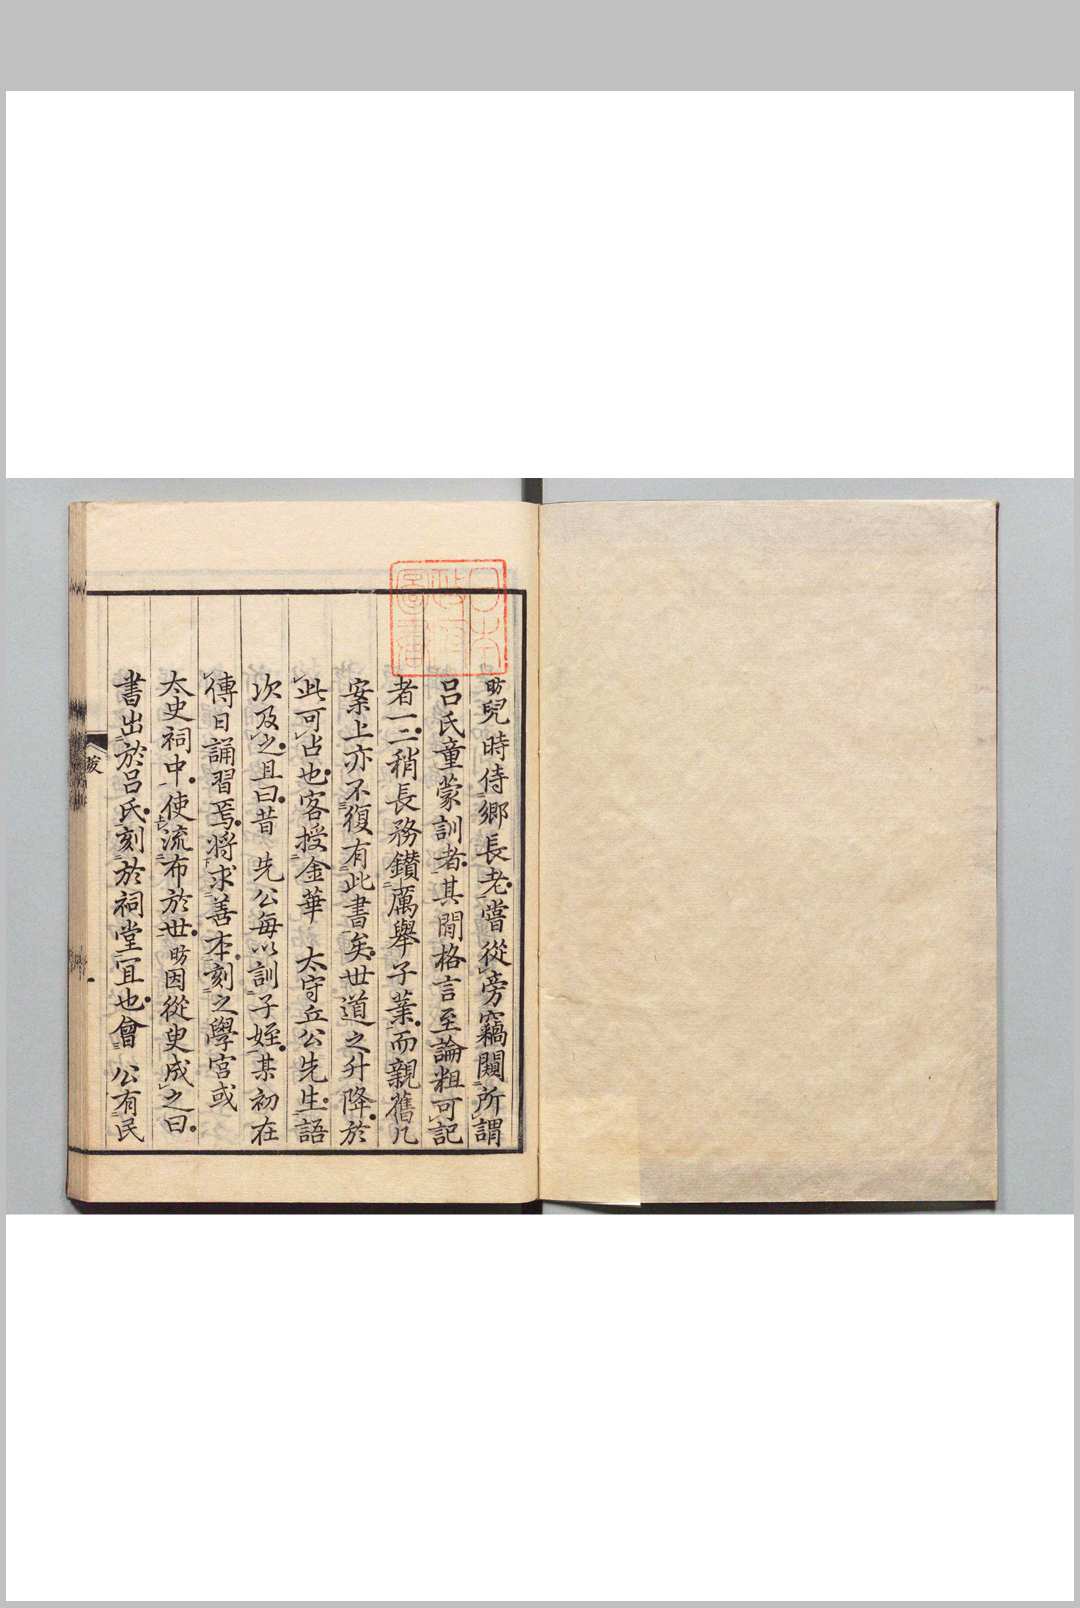 昉兒時侍鄉長老嘗從旁竊闚所謂
呂氏童蒙訓者其間格言至論粗可記
者一二稍長務鑚厲舉子業而親舊几
案上亦不復有此書矣世道之升降於
此可占也客授金華 太守丘公先生語
次及之且曰昔 先公每以訓子姪某初在
傳日誦習焉將求善本刻之學宮或
太史祠中使流布於世昉因從臾成之曰
書出於呂氏刻於祠堂宜也會 公有民
跋
日本
政府
圖書